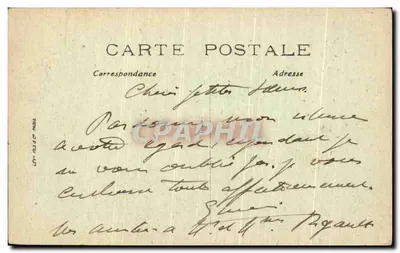 CARTE POSTALE
Correspondance Adresse
Chères petites Sœurs
Pardon mon silence
à votre égard, cependant je
ne vous oublie pas. je vous
embrasse toutes affectueusement.
mes amitiés à Mr et Mme Rigault
CPAPHIL